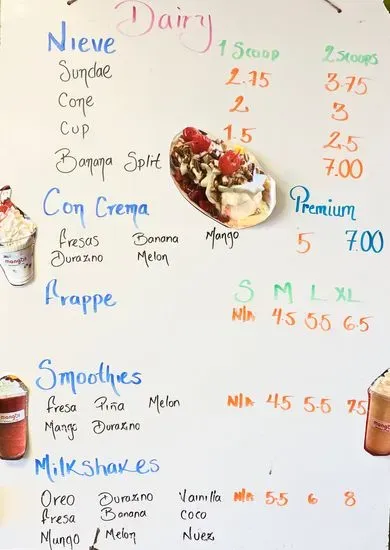 Dairy
Nieve 1 Scoop 2 Scoops
Sundae 2.75 3.75
Cone 2 3
Cup 1.5 2.5
Banana Split 7.00
Con Crema Premium
Fresas Banana Mango 5 7.00
Durazno Melon
Frappe S M L XL
N/A 4.5 5.5 6.5
Smoothies
Fresa Piña Melon N/A 4.5 5.5 7.5
Mango Durazno
Milkshakes
Oreo Durazno Vainilla N/A 5.5 6 8
Fresa Banana Coco
Mango Melon Nuez